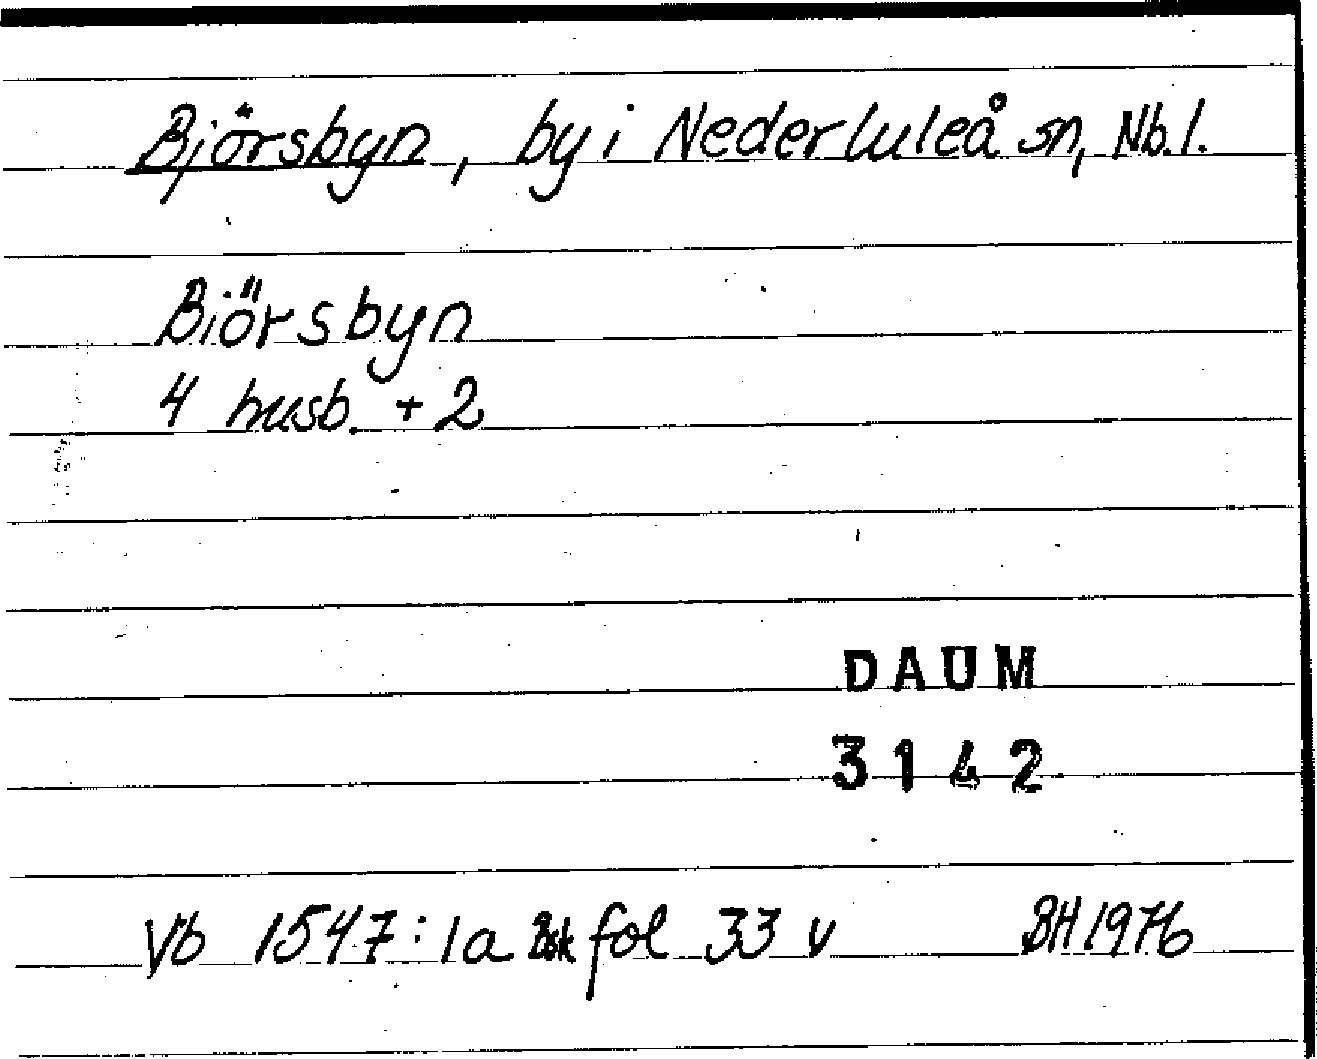 Björsbyn, by i Nederluleå sn, Nb.l.
Biörsbyn
4 husb. + 2
DAUM
3142
Vb 1547:1a fol 33 v BH 1976